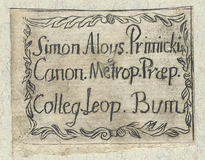 Simon Aloys. Primicki
Canon. Metrop. Præp.
Colleg. Leop. Bum